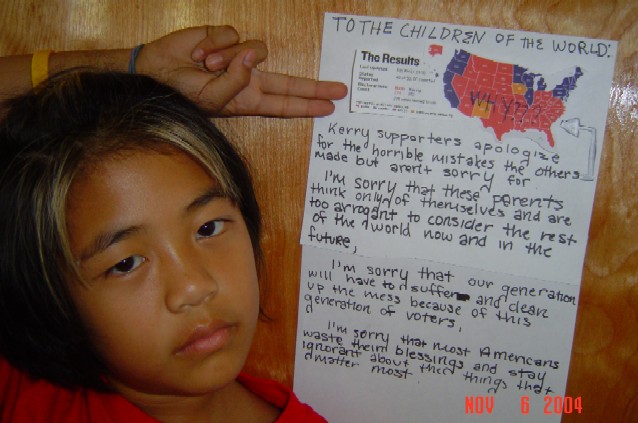 TO THE CHILDREN OF THE WORLD:
The Results
WHY???
Kerry supporters apologize
for the horrible mistakes the others
made but aren't sorry for
I'm sorry that these parents
think only of themselves and are
too arrogant to consider the rest
of the world now and in the
future,
I'm sorry that our generation
will have to suffer and clean
up the mess because of this
generation of voters,
I'm sorry that most Americans
waste their blessings and stay
ignorant about the things that
matter most.
NOV 6 2004